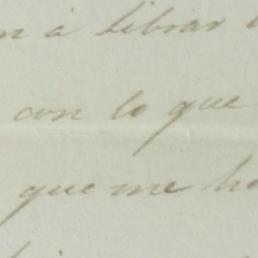 n á librar
con lo que
que me h